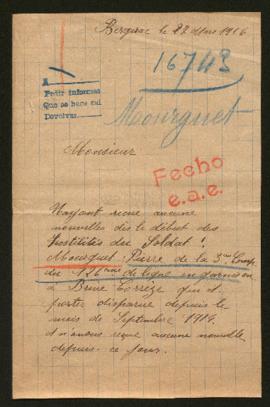 Bergerac le 22 Mars 1916
16743
A
Pedir informes
Que se hace cui
Devolver
Mourguet
Monsieur
Fecho
e.a.e.
N'ayant recue aucune
nouvelles dès le début des
hostilités du Soldat :
Mourguet Pierre de la 3eme Comp.
du 126eme de ligne en garnison
à Brive Corrèze qui est
porté disparue depuis le
mois de Septembre 1914.
et n'avons reçue aucune nouvelle
depuis ce jour.